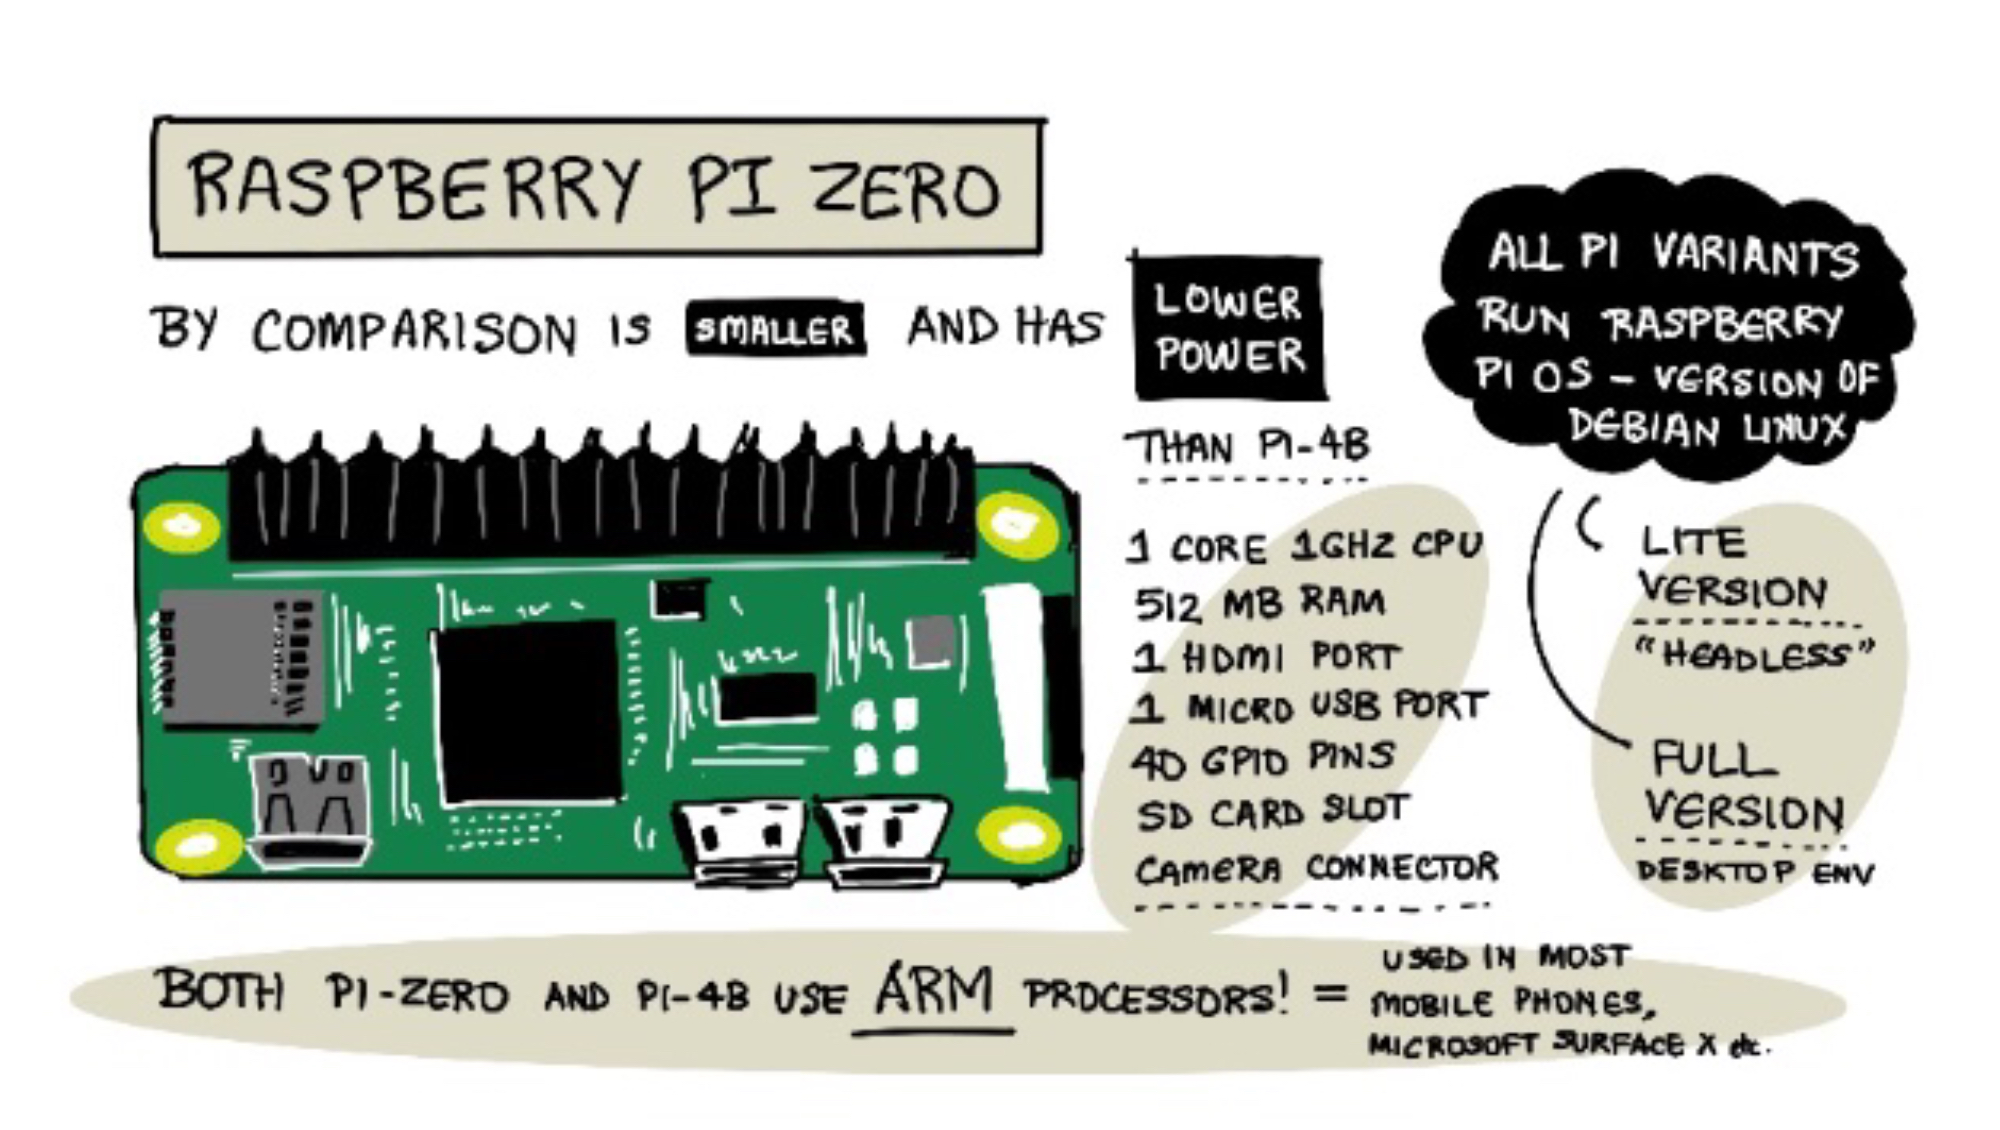 RASPBERRY PI ZERO
BY COMPARISON IS SMALLER AND HAS
LOWER
POWER
THAN PI-4B
1 CORE 1GHZ CPU
512 MB RAM
1 HDMI PORT
1 MICRO USB PORT
40 GPIO PINS
SD CARD SLOT
CAMERA CONNECTOR
ALL PI VARIANTS
RUN RASPBERRY
PI OS - VERSION OF
DEBIAN LINUX
LITE
VERSION
"HEADLESS"
FULL
VERSION
DESKTOP ENV
BOTH PI-ZERO AND PI-4B USE ARM PROCESSORS! =
USED IN MOST
MOBILE PHONES,
MICROSOFT SURFACE X etc.